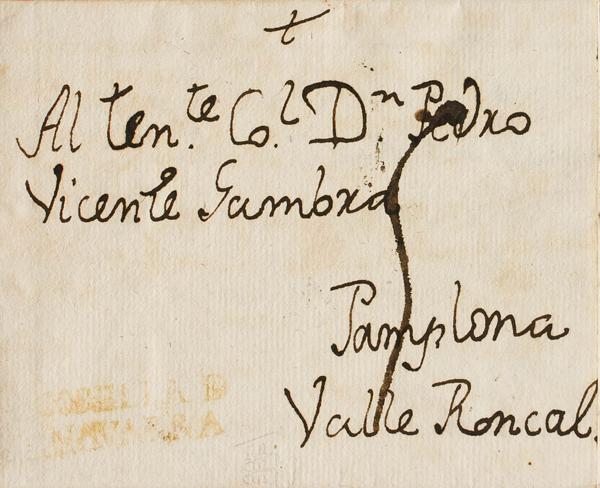 Al ten.te Co.l Dn Pedro
Vicente Gambra
Pamplona
Valle Roncal.
NAVARRA